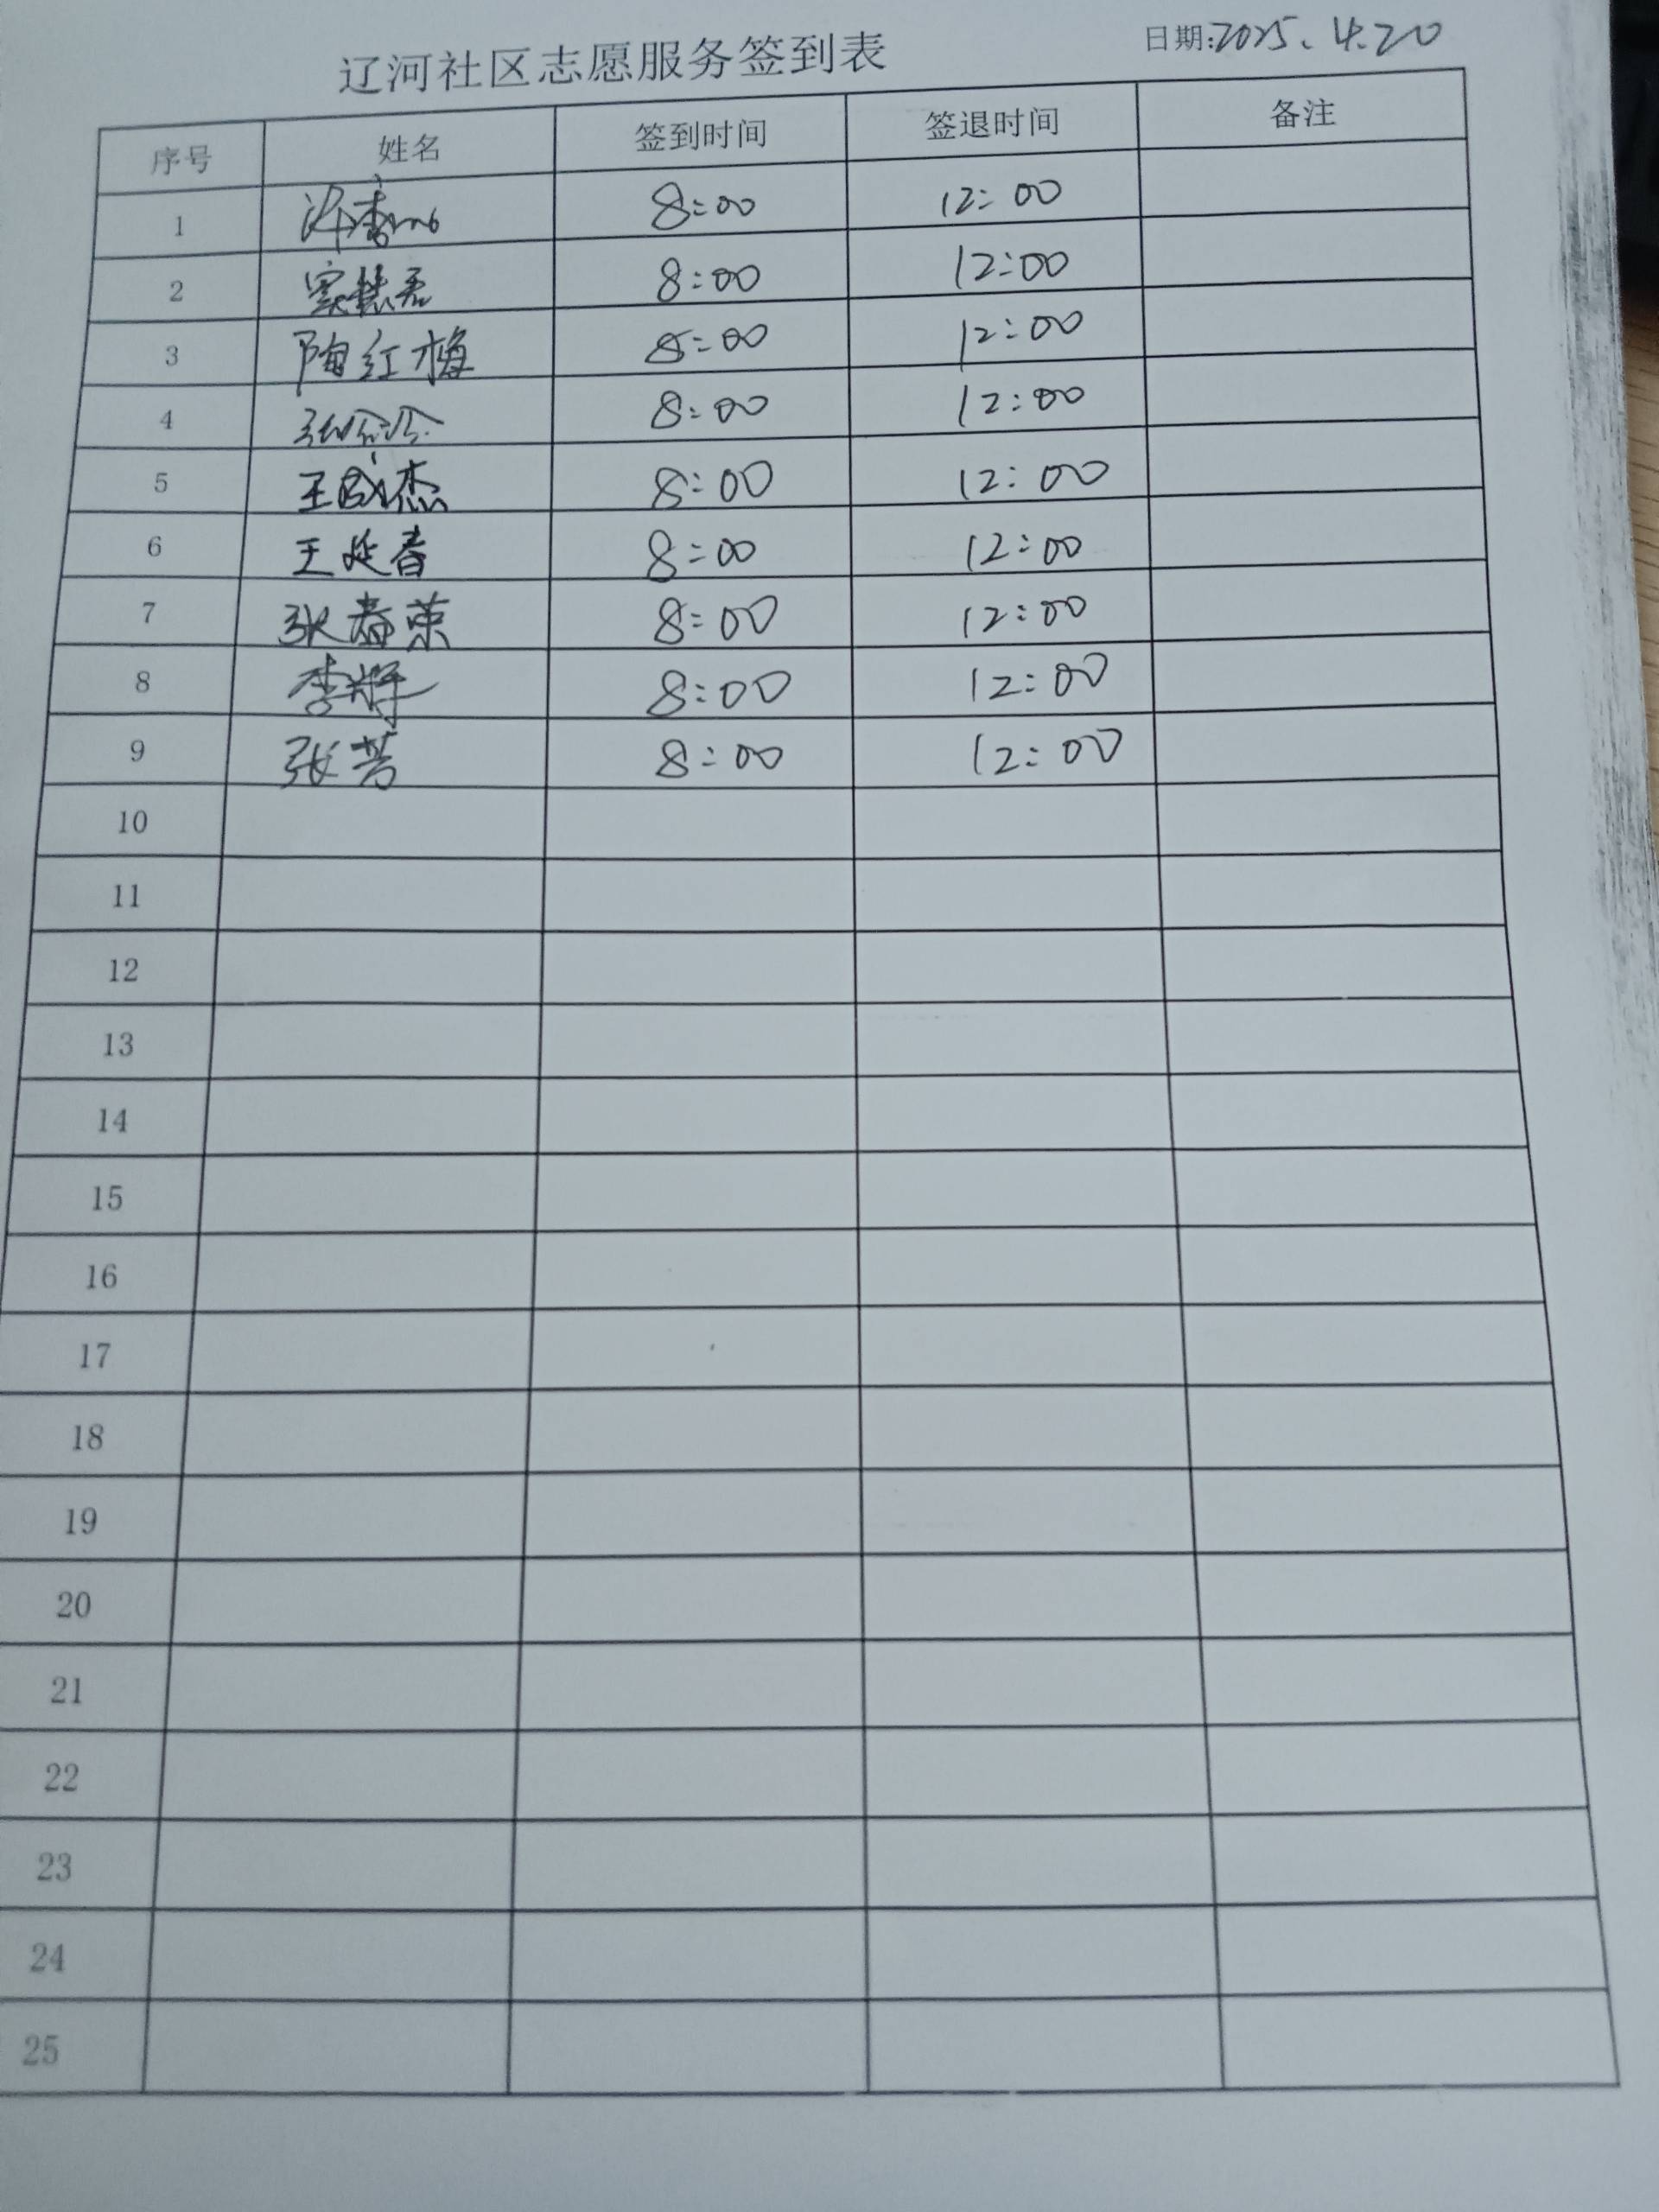 辽河社区志愿服务签到表
日期:2025.4.20
序号 姓名 签到时间 签退时间 备注
1 8:00 12:00
2 8:00 12:00
3 陶红梅 8:00 12:00
4 8:00 12:00
5 王成杰 8:00 12:00
6 王延春 8:00 12:00
7 张春荣 8:00 12:00
8 李辉 8:00 12:00
9 张芳 8:00 12:00
10
11
12
13
14
15
16
17
18
19
20
21
22
23
24
25